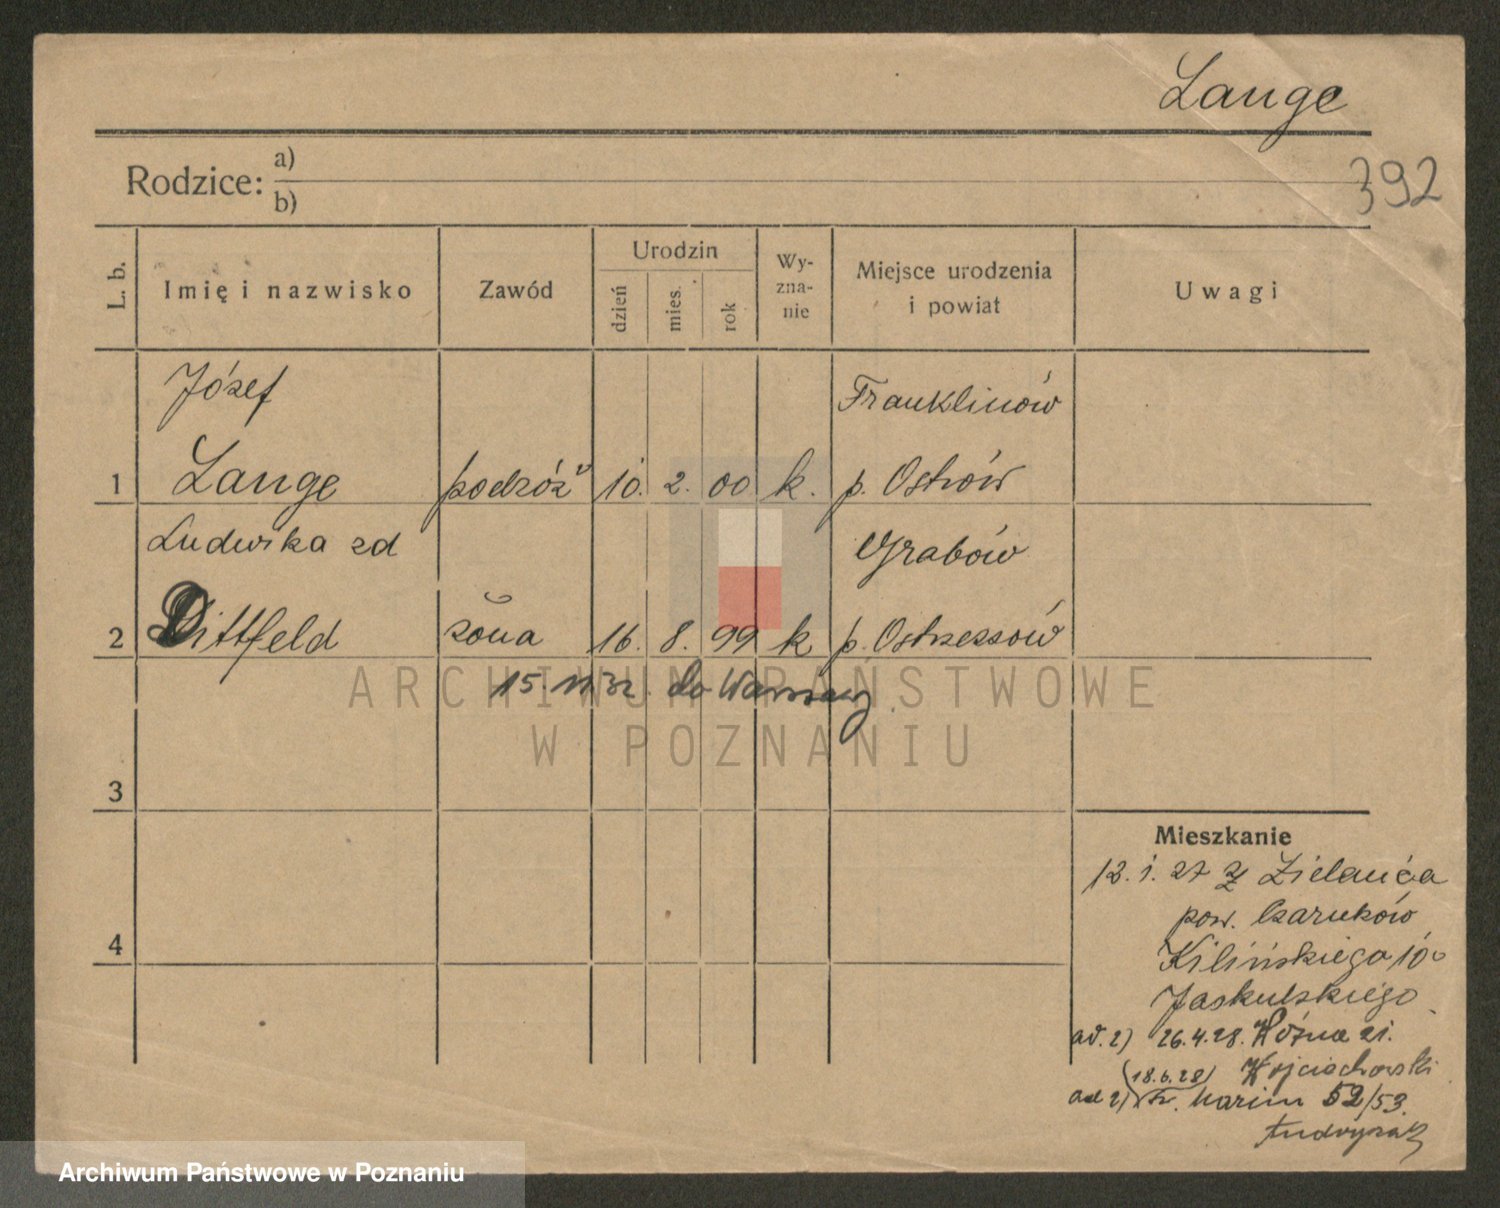 Lange
392
Rodzice: a)
b)
L. b.
Imię i nazwisko
Zawód
Urodzin
dzień
mies.
rok
Wy-
zna-
nie
Miejsce urodzenia
i powiat
Uwagi
Józef
Franklinów
1 Lange podróż 10. 2. 00 k. p. Ostrów
Ludwika zd
Grabów
2 Dittfeld żona 16. 8. 99 k p. Ostrzeszów
15. 11 32. do Warszawy
ARCHIWUM PAŃSTWOWE
W POZNANIU
3
Mieszkanie
12. 1. 27 z Zielańca
pow. Czarnków
4
Kilińskiego 10
Jaskulskiego
ad. 2) 26.4.28. Różna 21.
Wojciechowski
(18.6.28)
ad 2) Marcin 52/53.
Archiwum Państwowe w Poznaniu